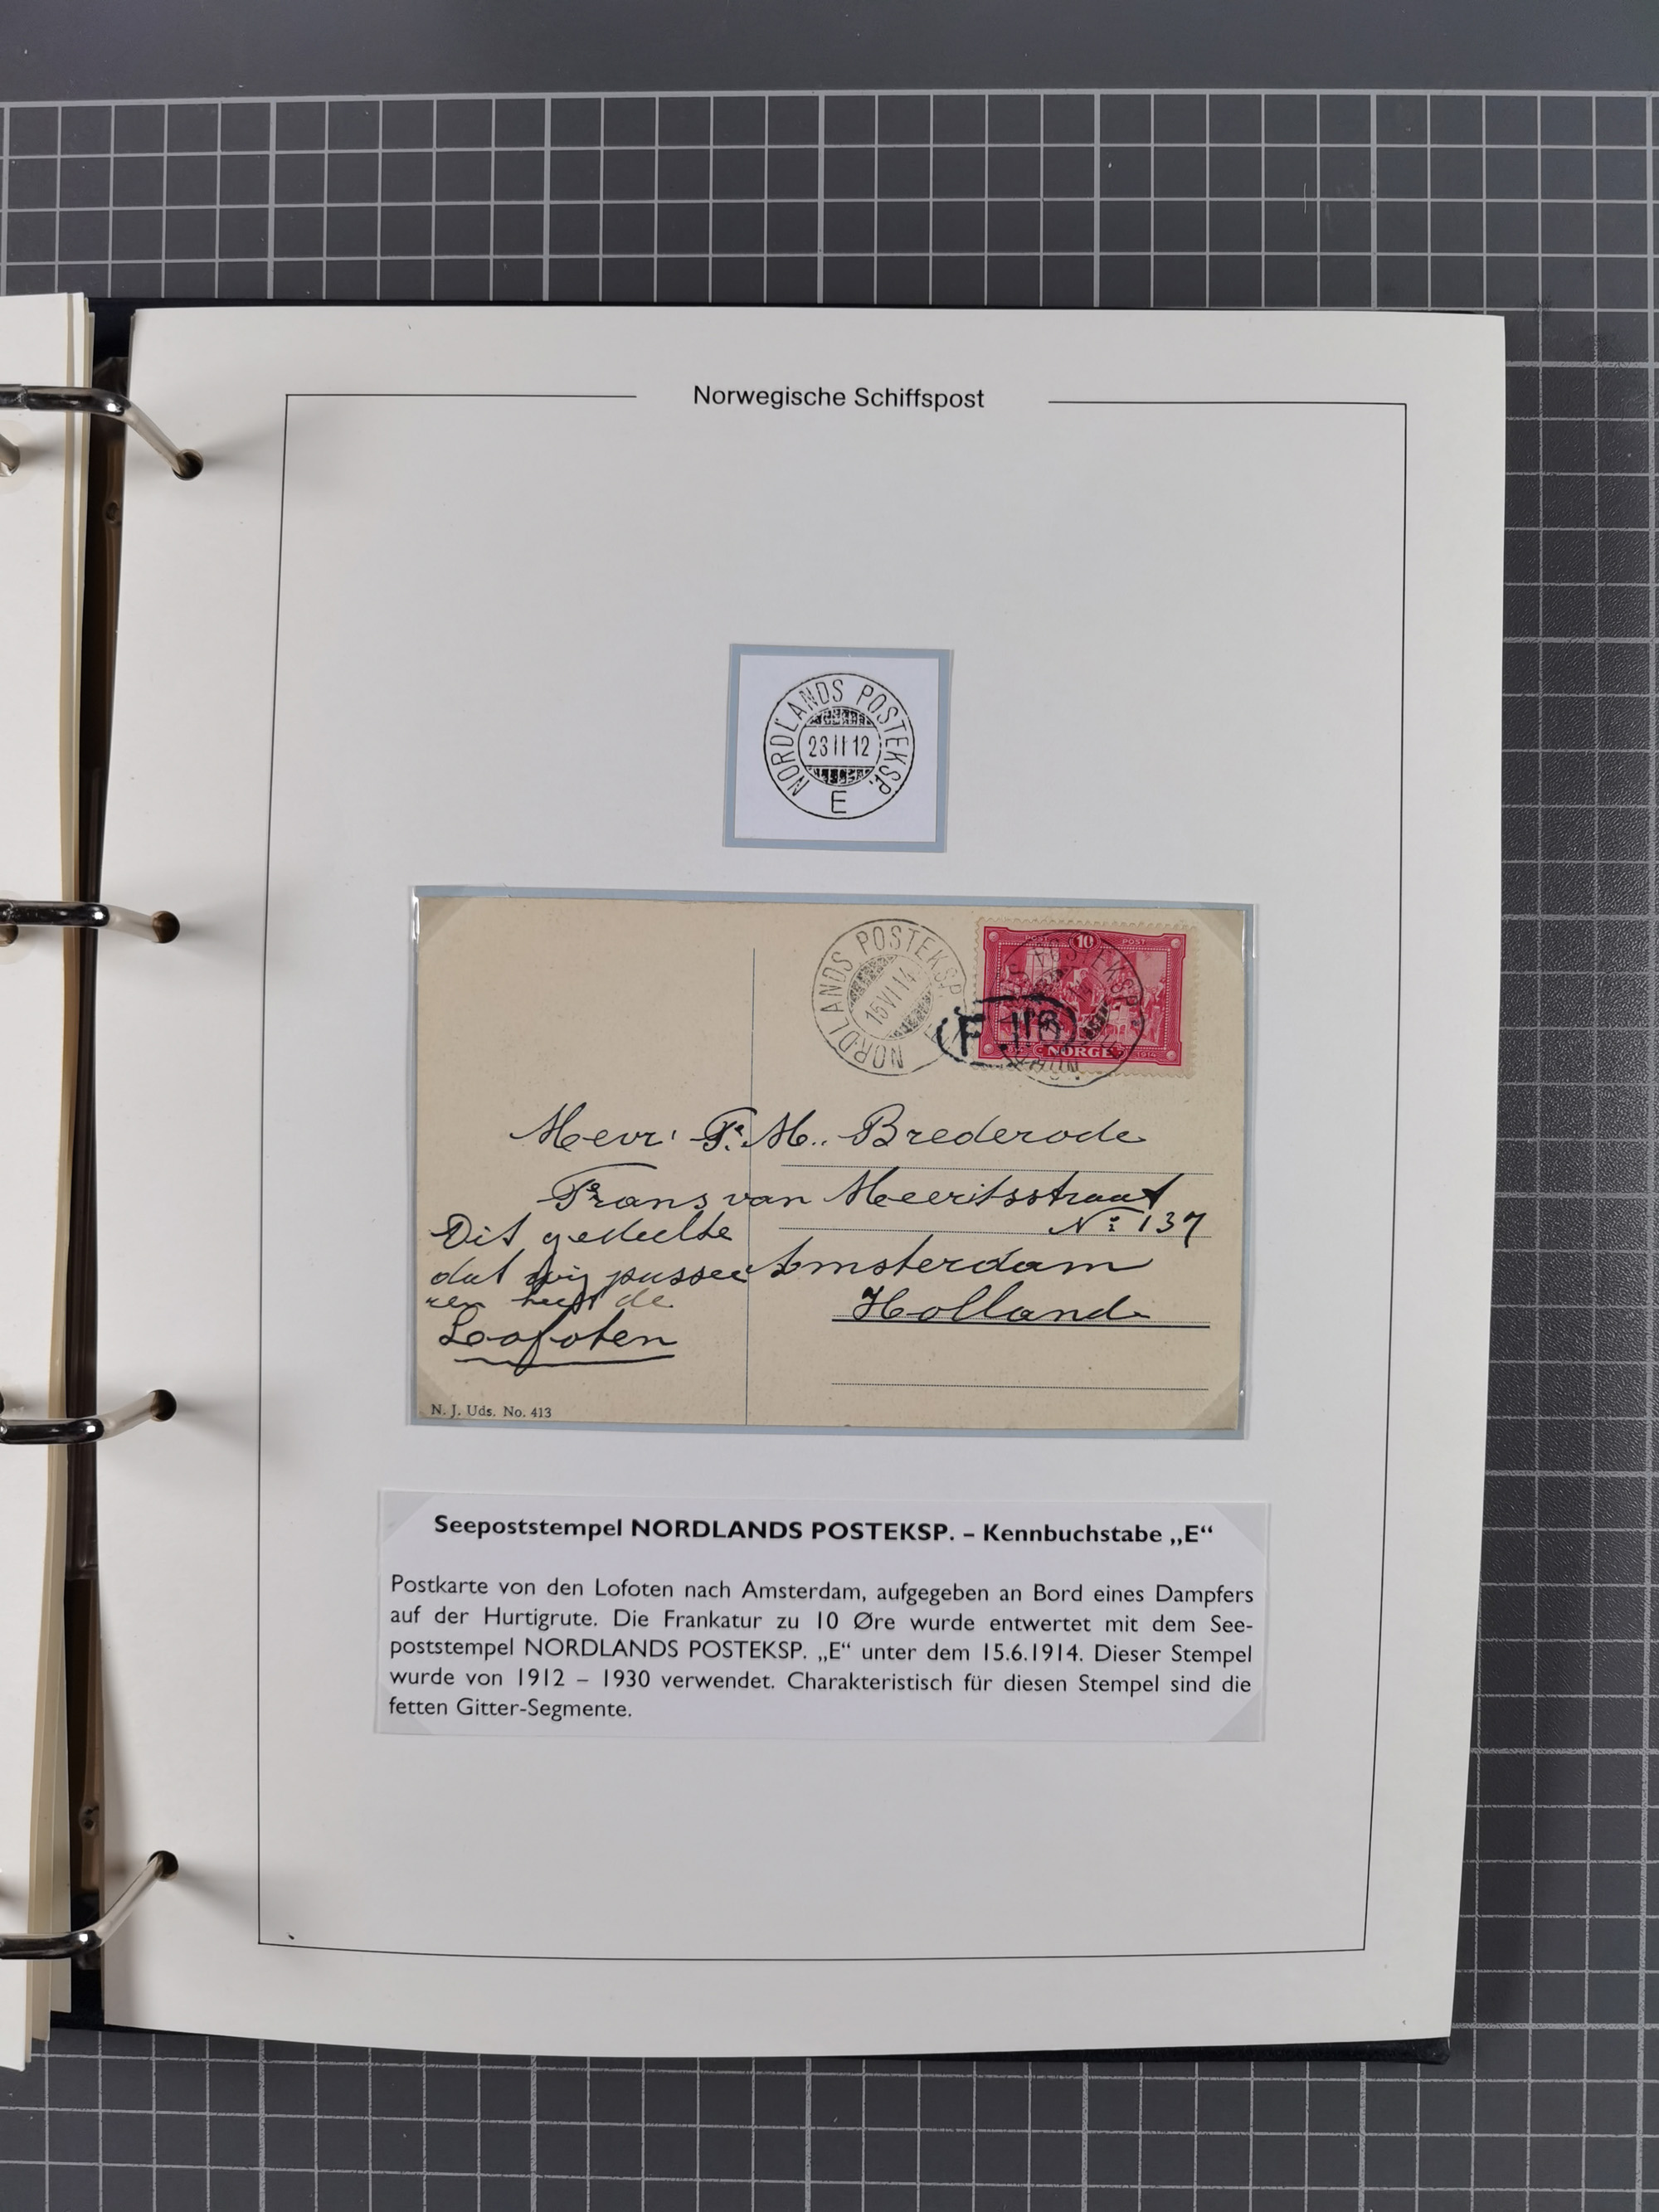 Norwegische Schiffspost
NORDLANDS POSTEKSP.
23 II 12
E
NORDLANDS POSTEKSP.
15 VI 14
POST 10 POST
NORGE 1914
F. 118
Brederode
Frans van Mieerisstraat
No 137
Amsterdam
Holland
Dit gedeelte
dat wij passee
ren heet de
Lofoten
N. J. Uds. No. 413
Seepoststempel NORDLANDS POSTEKSP. – Kennbuchstabe „E“
Postkarte von den Lofoten nach Amsterdam, aufgegeben an Bord eines Dampfers
auf der Hurtigrute. Die Frankatur zu 10 Øre wurde entwertet mit dem See-
poststempel NORDLANDS POSTEKSP. „E“ unter dem 15.6.1914. Dieser Stempel
wurde von 1912 – 1930 verwendet. Charakteristisch für diesen Stempel sind die
fetten Gitter-Segmente.